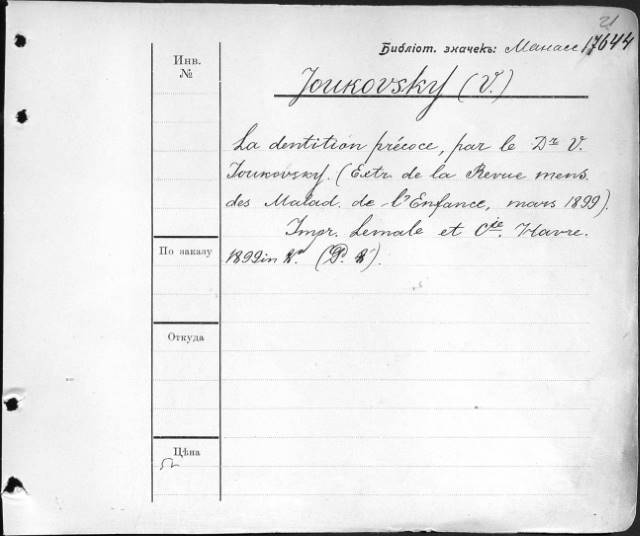 21
Библіот. значекъ: Манасс 17644
Инв.
№
Joukovsky (V.)
La dentition précoce, par le Dr V.
Joukovsky. (Extr. de la Revue mens.
des Malad. de l'Enfance, mars 1899).
Impr. Lemale et Cie. Havre.
По заказу
1899 in 8º. (P. 8).
Откуда
Цѣна